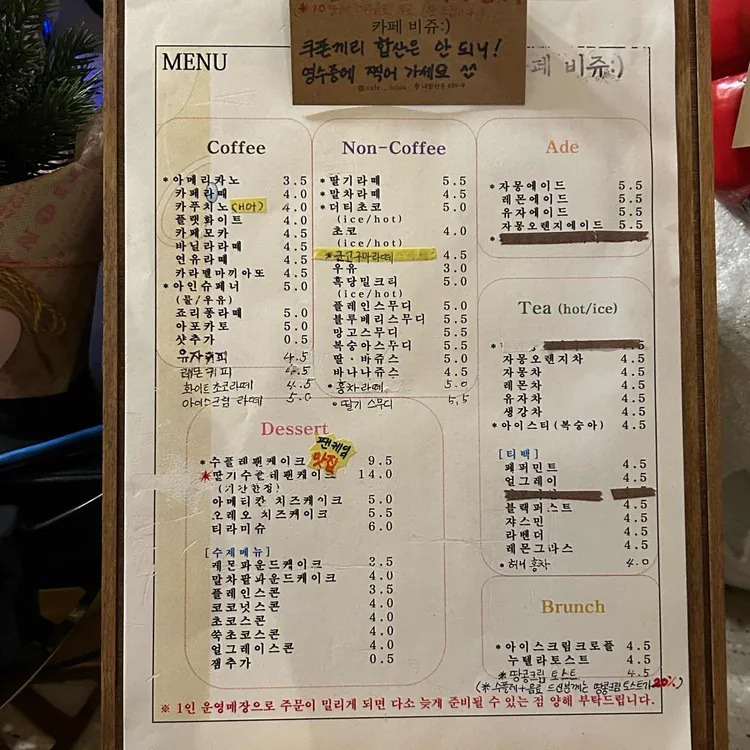 카페 비쥬:)
쿠폰끼리 합산은 안 되니!
영수증에 찍어 가세요
MENU
카페 비쥬:)
Coffee
*아메리카노 3.5
카페라떼 4.0
카푸치노(HOT) 4.0
플랫화이트 4.0
카페모카 4.5
바닐라라떼 4.5
연유라떼 4.5
카라멜마끼아또 4.5
*아인슈페너 5.0
(물/우유)
죠리퐁라떼 5.0
아포카토 5.0
샷추가 0.5
유자커피 4.5
레몬커피 4.5
화이트초코라떼 4.5
아이스크림 라떼 5.0
Non-Coffee
*딸기라떼 5.5
*말차라떼 5.5
*더티초코 5.0
(ice/hot)
초코 4.0
(ice/hot)
*군고구마라떼 4.5
우유 3.0
흑당밀크티 5.0
(ice/hot)
플레인스무디 5.5
블루베리스무디 5.5
망고스무디 5.5
복숭아스무디 5.5
딸·바쥬스 5.0
바나나쥬스 4.5
*홍차라떼 5.0
*딸기 스무디 5.5
Ade
*자몽에이드 5.5
레몬에이드 5.5
유자에이드 5.5
자몽오렌지에이드 5.5
*
Tea (hot/ice)
*
자몽오렌지차 4.5
자몽차 4.5
레몬차 4.5
유자차 4.5
생강차 4.5
*아이스티(복숭아) 4.5
[티백]
페퍼민트 4.5
얼그레이 4.5
블랙퍼스트 4.5
쟈스민 4.5
라벤더 4.5
레몬그라스 4.5
•허니 홍차 4.0
Dessert
팬케익
맛집
*수플레팬케이크 9.5
*딸기수플레팬케이크 14.0
(기간한정)
아메리칸 치즈케이크 5.0
오레오 치즈케이크 5.5
티라미슈 6.0
[수제메뉴]
레몬파운드케이크 3.5
말차팥파운드케이크 4.0
플레인스콘 3.5
코코넛스콘 4.0
초코스콘 4.0
쑥초코스콘 4.0
얼그레이스콘 4.0
잼추가 0.5
Brunch
*아이스크림크로플 4.5
누텔라토스트 4.5
*땅콩크림 토스트 4.5
(*수플레+음료 드신분께는 땅콩크림토스트가 20%)
※ 1인 운영매장으로 주문이 밀리게 되면 다소 늦게 준비될 수 있는 점 양해 부탁드립니다.